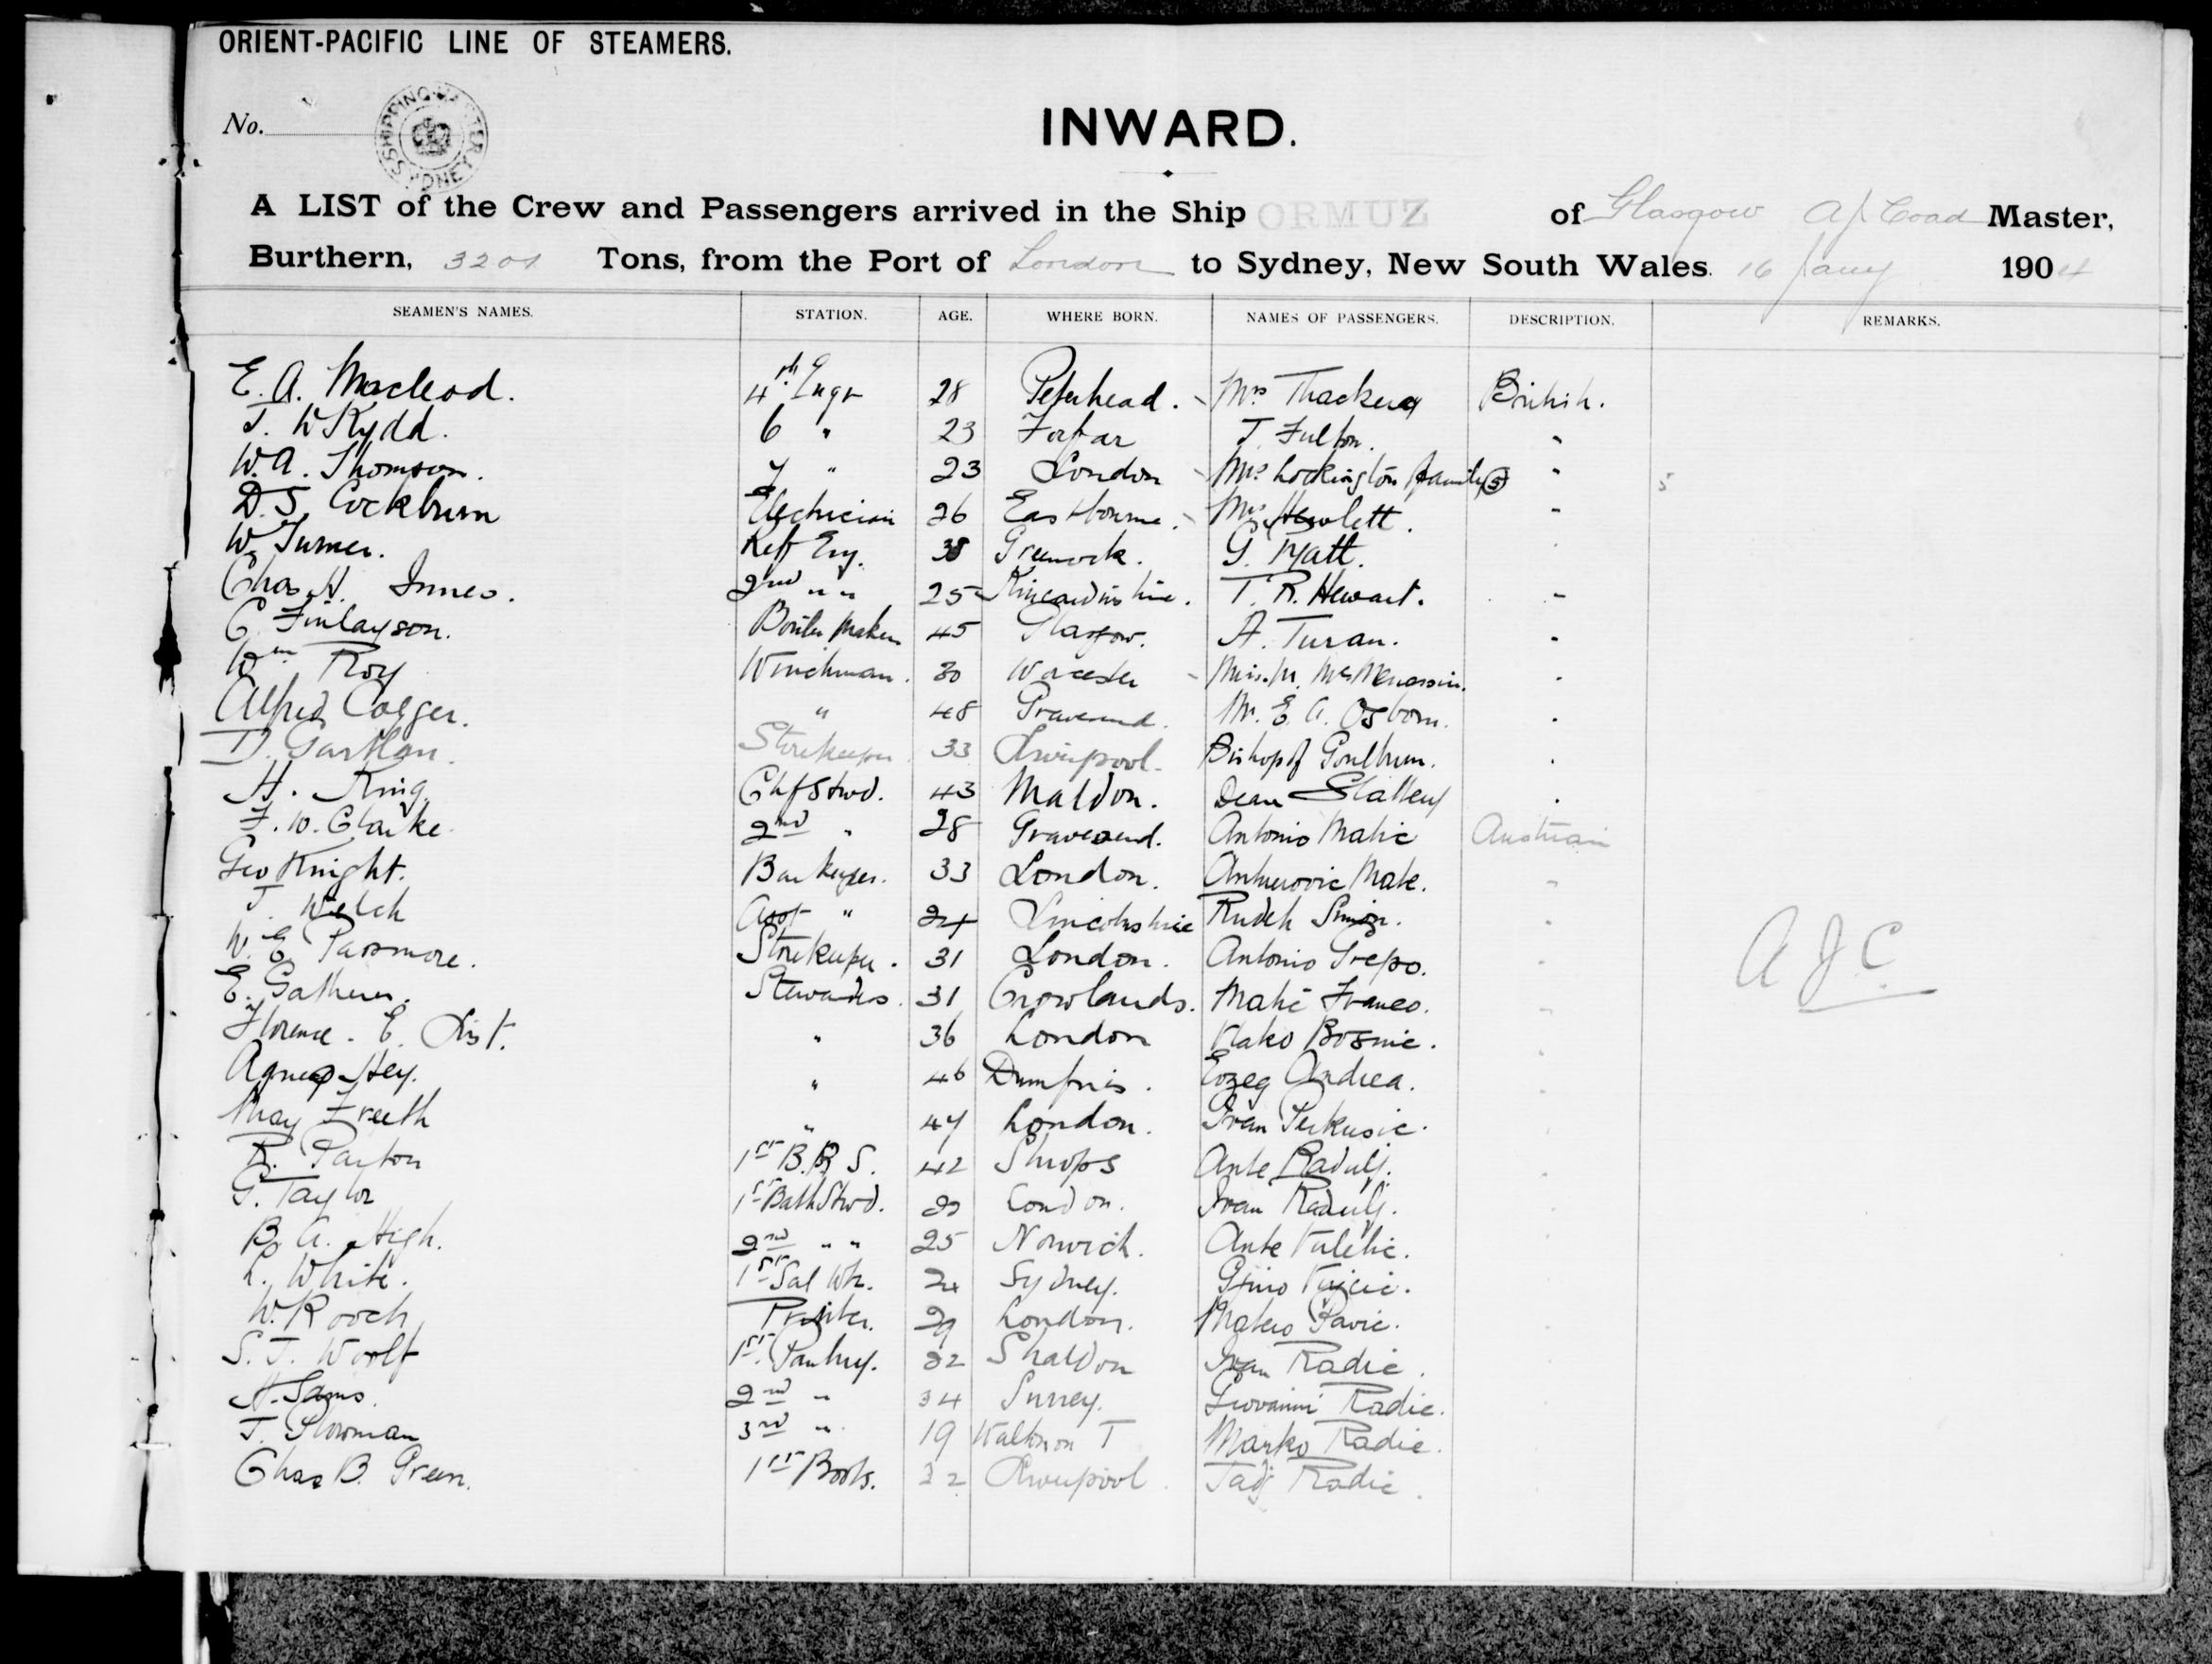 ORIENT-PACIFIC LINE OF STEAMERS.
No.
SHIPPING MASTER SYDNEY
INWARD.
A LIST of the Crew and Passengers arrived in the Ship ORMUZ of Glasgow A J. Coad Master,
Burthern, 3201 Tons, from the Port of London to Sydney, New South Wales. 16 Jany 1904
SEAMEN'S NAMES. STATION. AGE. WHERE BORN. NAMES OF PASSENGERS. DESCRIPTION. REMARKS.
E. A. Macleod. 4th Engr 28 Peterhead. Mrs Thackeray British.
J. W Kydd. 6 " 23 Forfar J. Fulton. "
W. A. Thomson. 7 " 23 London Mrs Lockington family 5 " 5
D. S. Cockburn Electrician 26 Eastbourne. Mrs Hewlett. "
W. Turner. Refr Eng. 38 Greenock. G. Myatt.
Chas H. Innes. 2nd " " 25 Kincardineshire. T. R. Hewart. "
G. Finlayson. Boiler Maker 45 Glasgow. A. Turan. "
Wm Roy Winchman. 30 Worcester Miss M. "
Alfred Colger. " 48 Gravesend. Mr. E. A. Osborn. "
D. Gartlan. Storekeeper 33 Liverpool. Bishop of Goulburn. "
H. King Chf Stwd. 43 Maldon. Dean Slattery "
F. W. Clarke. 2nd " 28 Gravesend. Antonio Matic Austrian
Geo Knight. Barkeeper. 33 London. Antunovic Mate. "
J. Welch Asst " 24 Lincolnshire Rudeh Simon. "
W. E. Passmore. Storekeeper. 31 London. Antonio Grepo. "
E. Gathern. Stewardss. 31 Crowlands. Matic Franco. "
Florence. E. List. " 36 London Vlako Bosnic. "
Agnes Hey. " 46 Dumfries. Andrea. "
May Freeth " 47 London. Ivan Perkusic. "
R. Payton 1st B. R S. 42 Shrops Ante Radulj. "
G. Taylor 1st Bath Stwd. London. Ivan Radulj. "
B. A. High. 2nd " " 25 Norwich. Ante Vuletic. "
L. White. 1st Sal Wtr. 24 Sydney. Vujcic. "
W. Rooch Printer. 29 London. Mateo Pavic. "
S. J. Woolf 1st Pantry. 32 Shaldon Ivan Radic. "
H. Sams. 2nd " 34 Surrey. Giovanni Radic. "
J. Plowman 3rd " 19 Walton on T Marko Radic. "
Chas B. Green. 1st Boots. 32 Liverpool Tadj Radic.
A J C